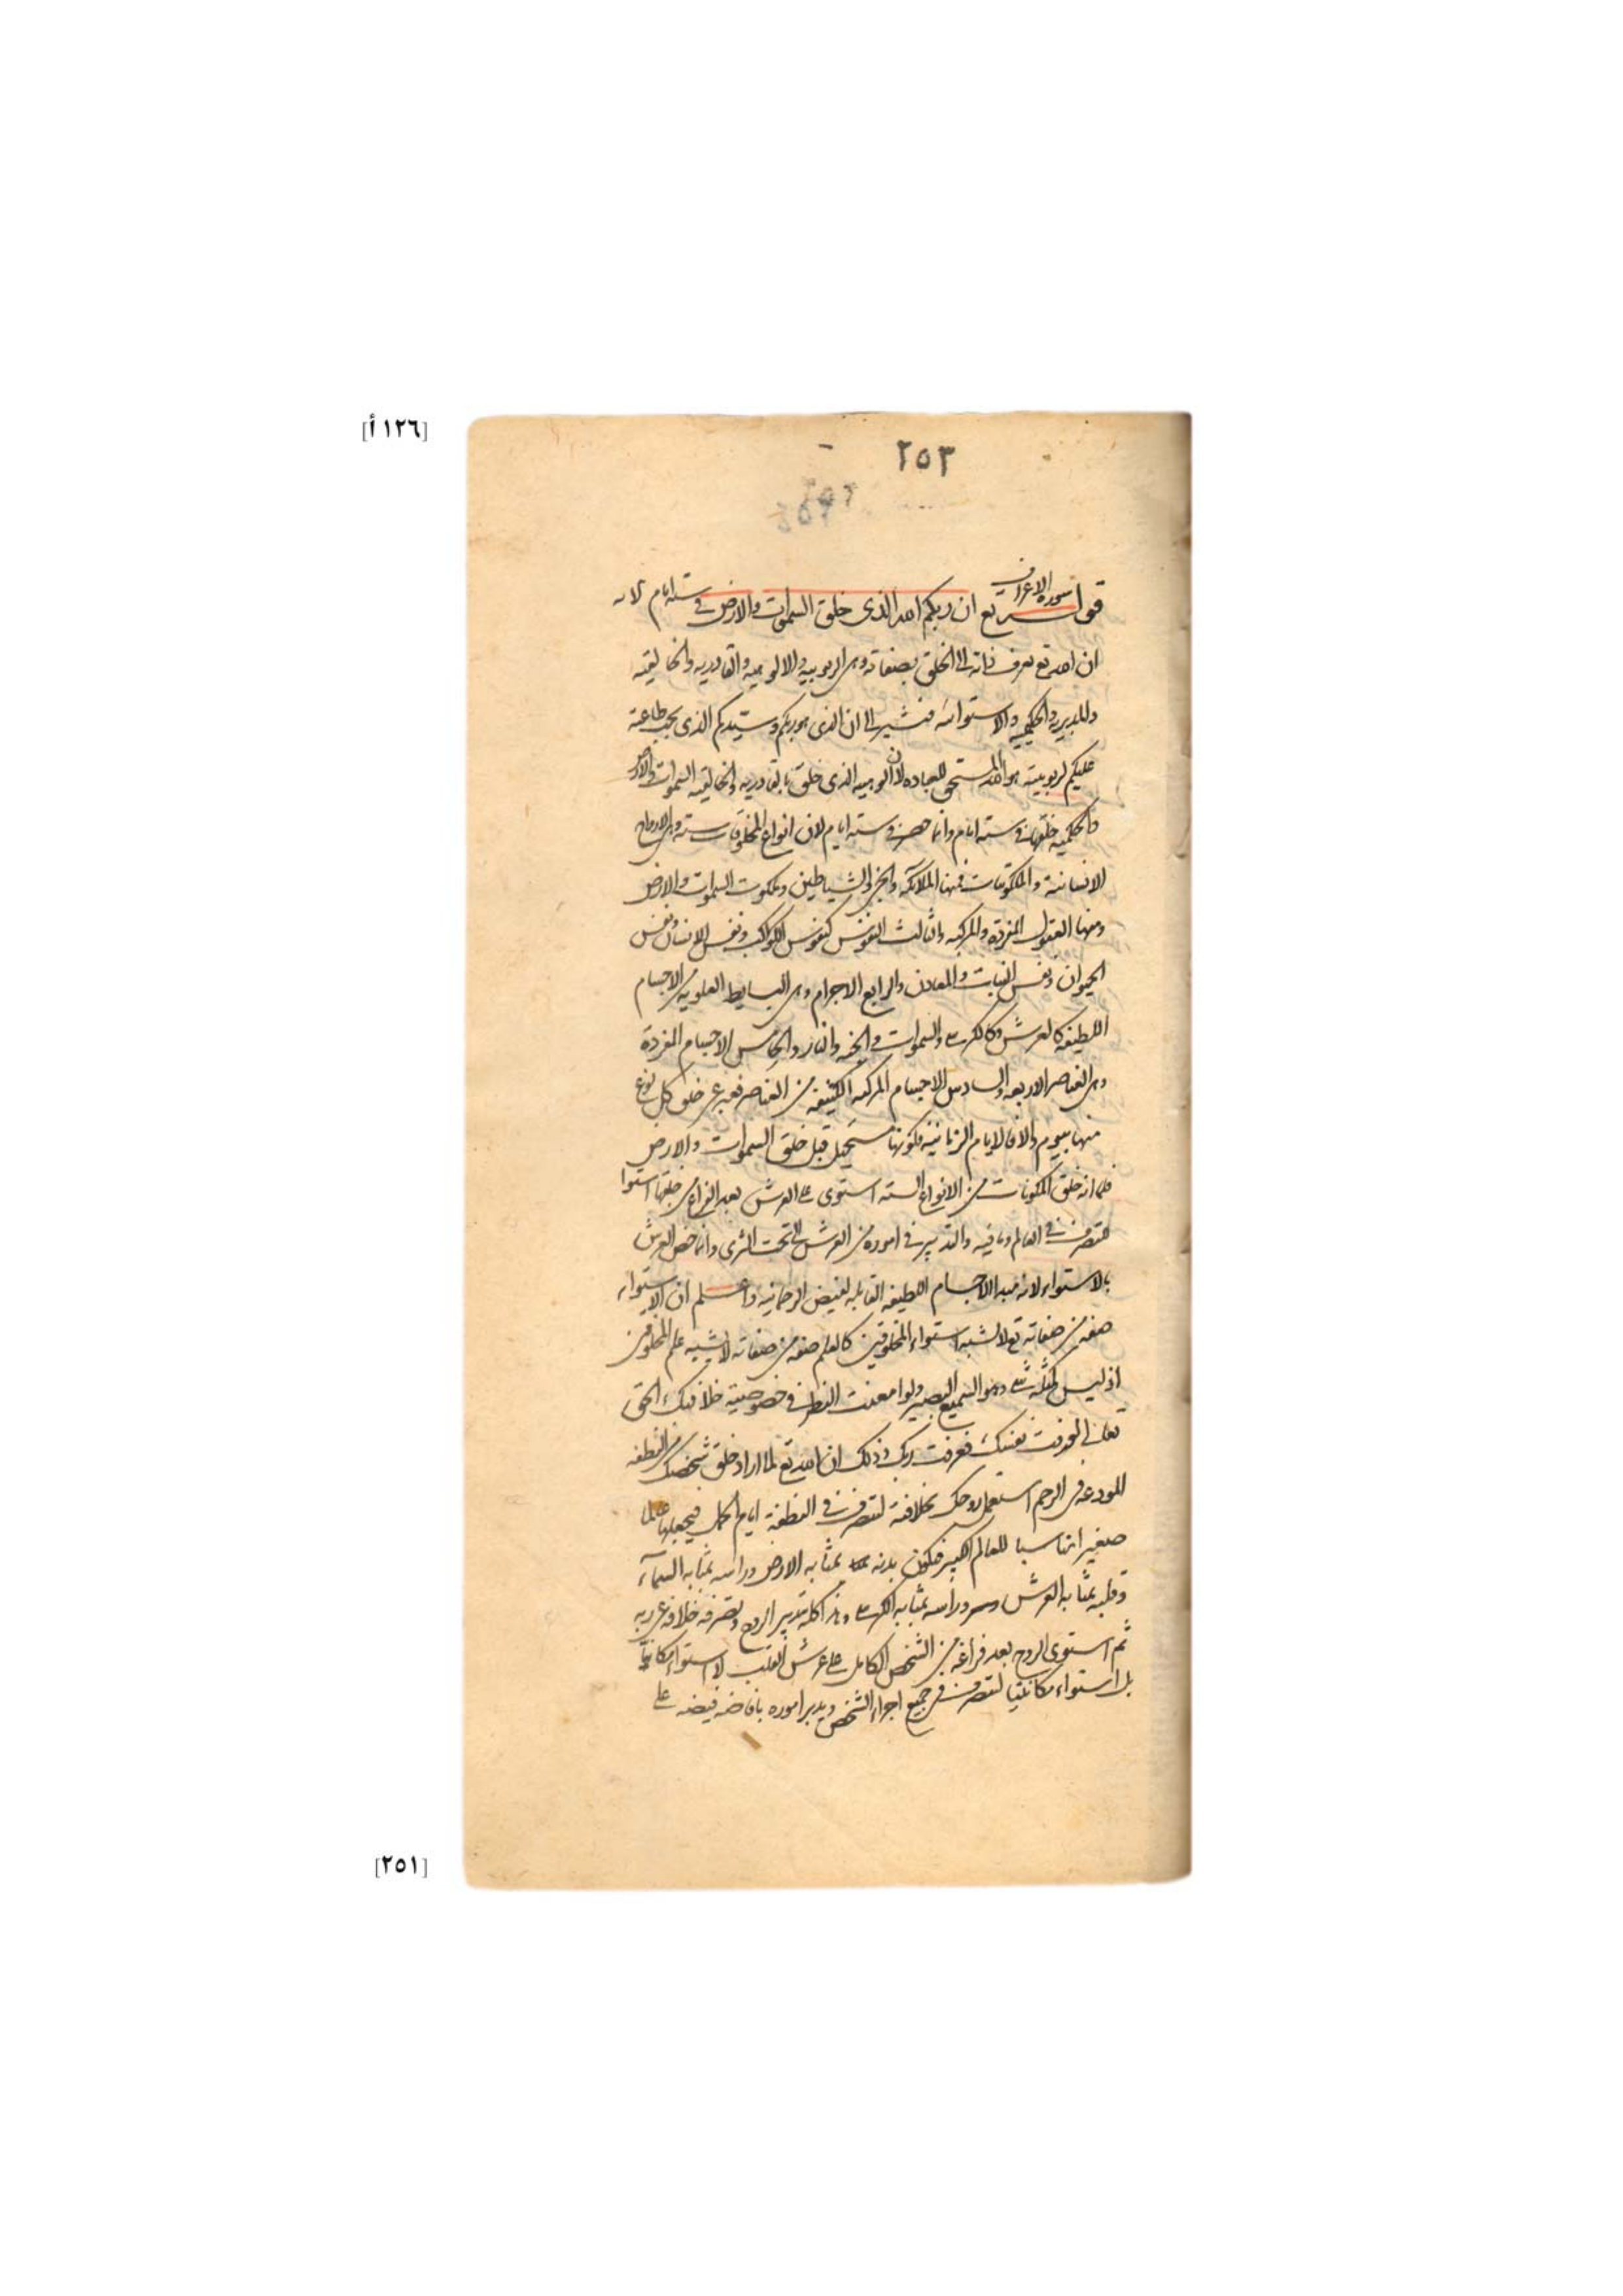 [١٢٦ أ]
٢٥٣
سورة الاعراف
قوله تع ان ربكم الله الذى خلق السموات والارض فى ستة ايام الآيه
ان الله تع يعرف ذاته الى الخلق بصفاته وهى الربوبيه والالوهيه والقادريه والخالقيه
والمدبريه والحكيميه والاستوائيه فيشير الى ان الذى هو ربكم وسيدكم الذى يجب طاعته
عليكم لربوبيته هو الله المستحق للعباده لان الوهيه الذى خلق بالقادريه والخالقيه السموات والارض
والحكميه خلقها فى ستة ايام وانما حصر فى ستة ايام لان انواع المخلوقات ستة وهى الارواح
الانسانية والملكوتيات فمنها الملائكة والجن والشياطين وملكوت السموات والارض
ومنها العقول المفردة والمركبه والثالث النفوس كنفوس الكواكب ونفس الانسان ونفس
الحيوان ونفس النبات والمعادن والرابع الاجرام وهى البسايط العلويه من الاجسام
اللطيفه كالعرش وكالكرسى والسموات والجنه والنار والخامس الاجسام المفردة
وهى العناصر الاربعه والسادس الاجسام المركبه الكثيفه من العناصر فعبر عن خلق كل نوع
منها بيوم والا فالايام الزمانية فكونها مستحيل قبل خلق السموات والارض
فلما انه خلق المكونات من الانواع السته استوى على العرش بعد الفراغ من خلقها استوا
متصرف فى العالم وما فيه والتدبير فى اموره من العرش الى تحت الثرى وانما خص العرش
بالاستواء لانه مبدا الاجسام اللطيفه القابله لفيض الرحمانيه واعلم ان الاستواء
صفه من صفاته تع لا يشبه استواء المخلوقين كالعلم صفه من صفاته لا يشبه علم المخلوقين
اذ ليس كمثله شى وهو السميع البصير ولو امعنت النظر فى خصوصية خلافتك الحق
تعالى لعرفت نفسك فعرفت ربك وذلك ان الله تع لما اراد خلق شخصك من النطفه
المودعه فى الرحم استعمل روحك بخلافته لتصرف فى النطفة ايام الحمل فيجعلها عالما
صغيرا مناسبا للعالم الكبير فيكون بدنه بمثابه الارض وراسه بمثابه السمآء
وقلبه بمثابه العرش وسره بمثابه الكرسى وهذا كله بتدبير الروح وتصرفه خلافه عن ربه
ثم استوى الروح بعد فراغه من الشخص الكامل على عرش القلب لا استواء مكانيا
بل استواء مكانتيا لتصرف فى جميع اجزاء الشخص ويدبر اموره بافاضه فيضه على
[٢٥١]